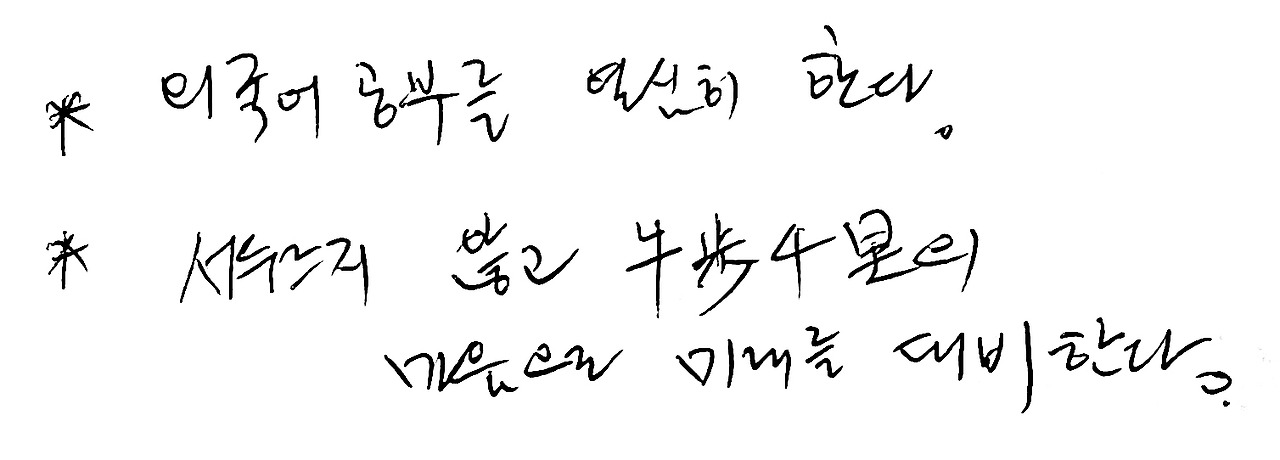 * 외국어 공부를 열심히 한다.
* 서두르지 않고 牛步千里의
마음으로 미래를 대비한다.